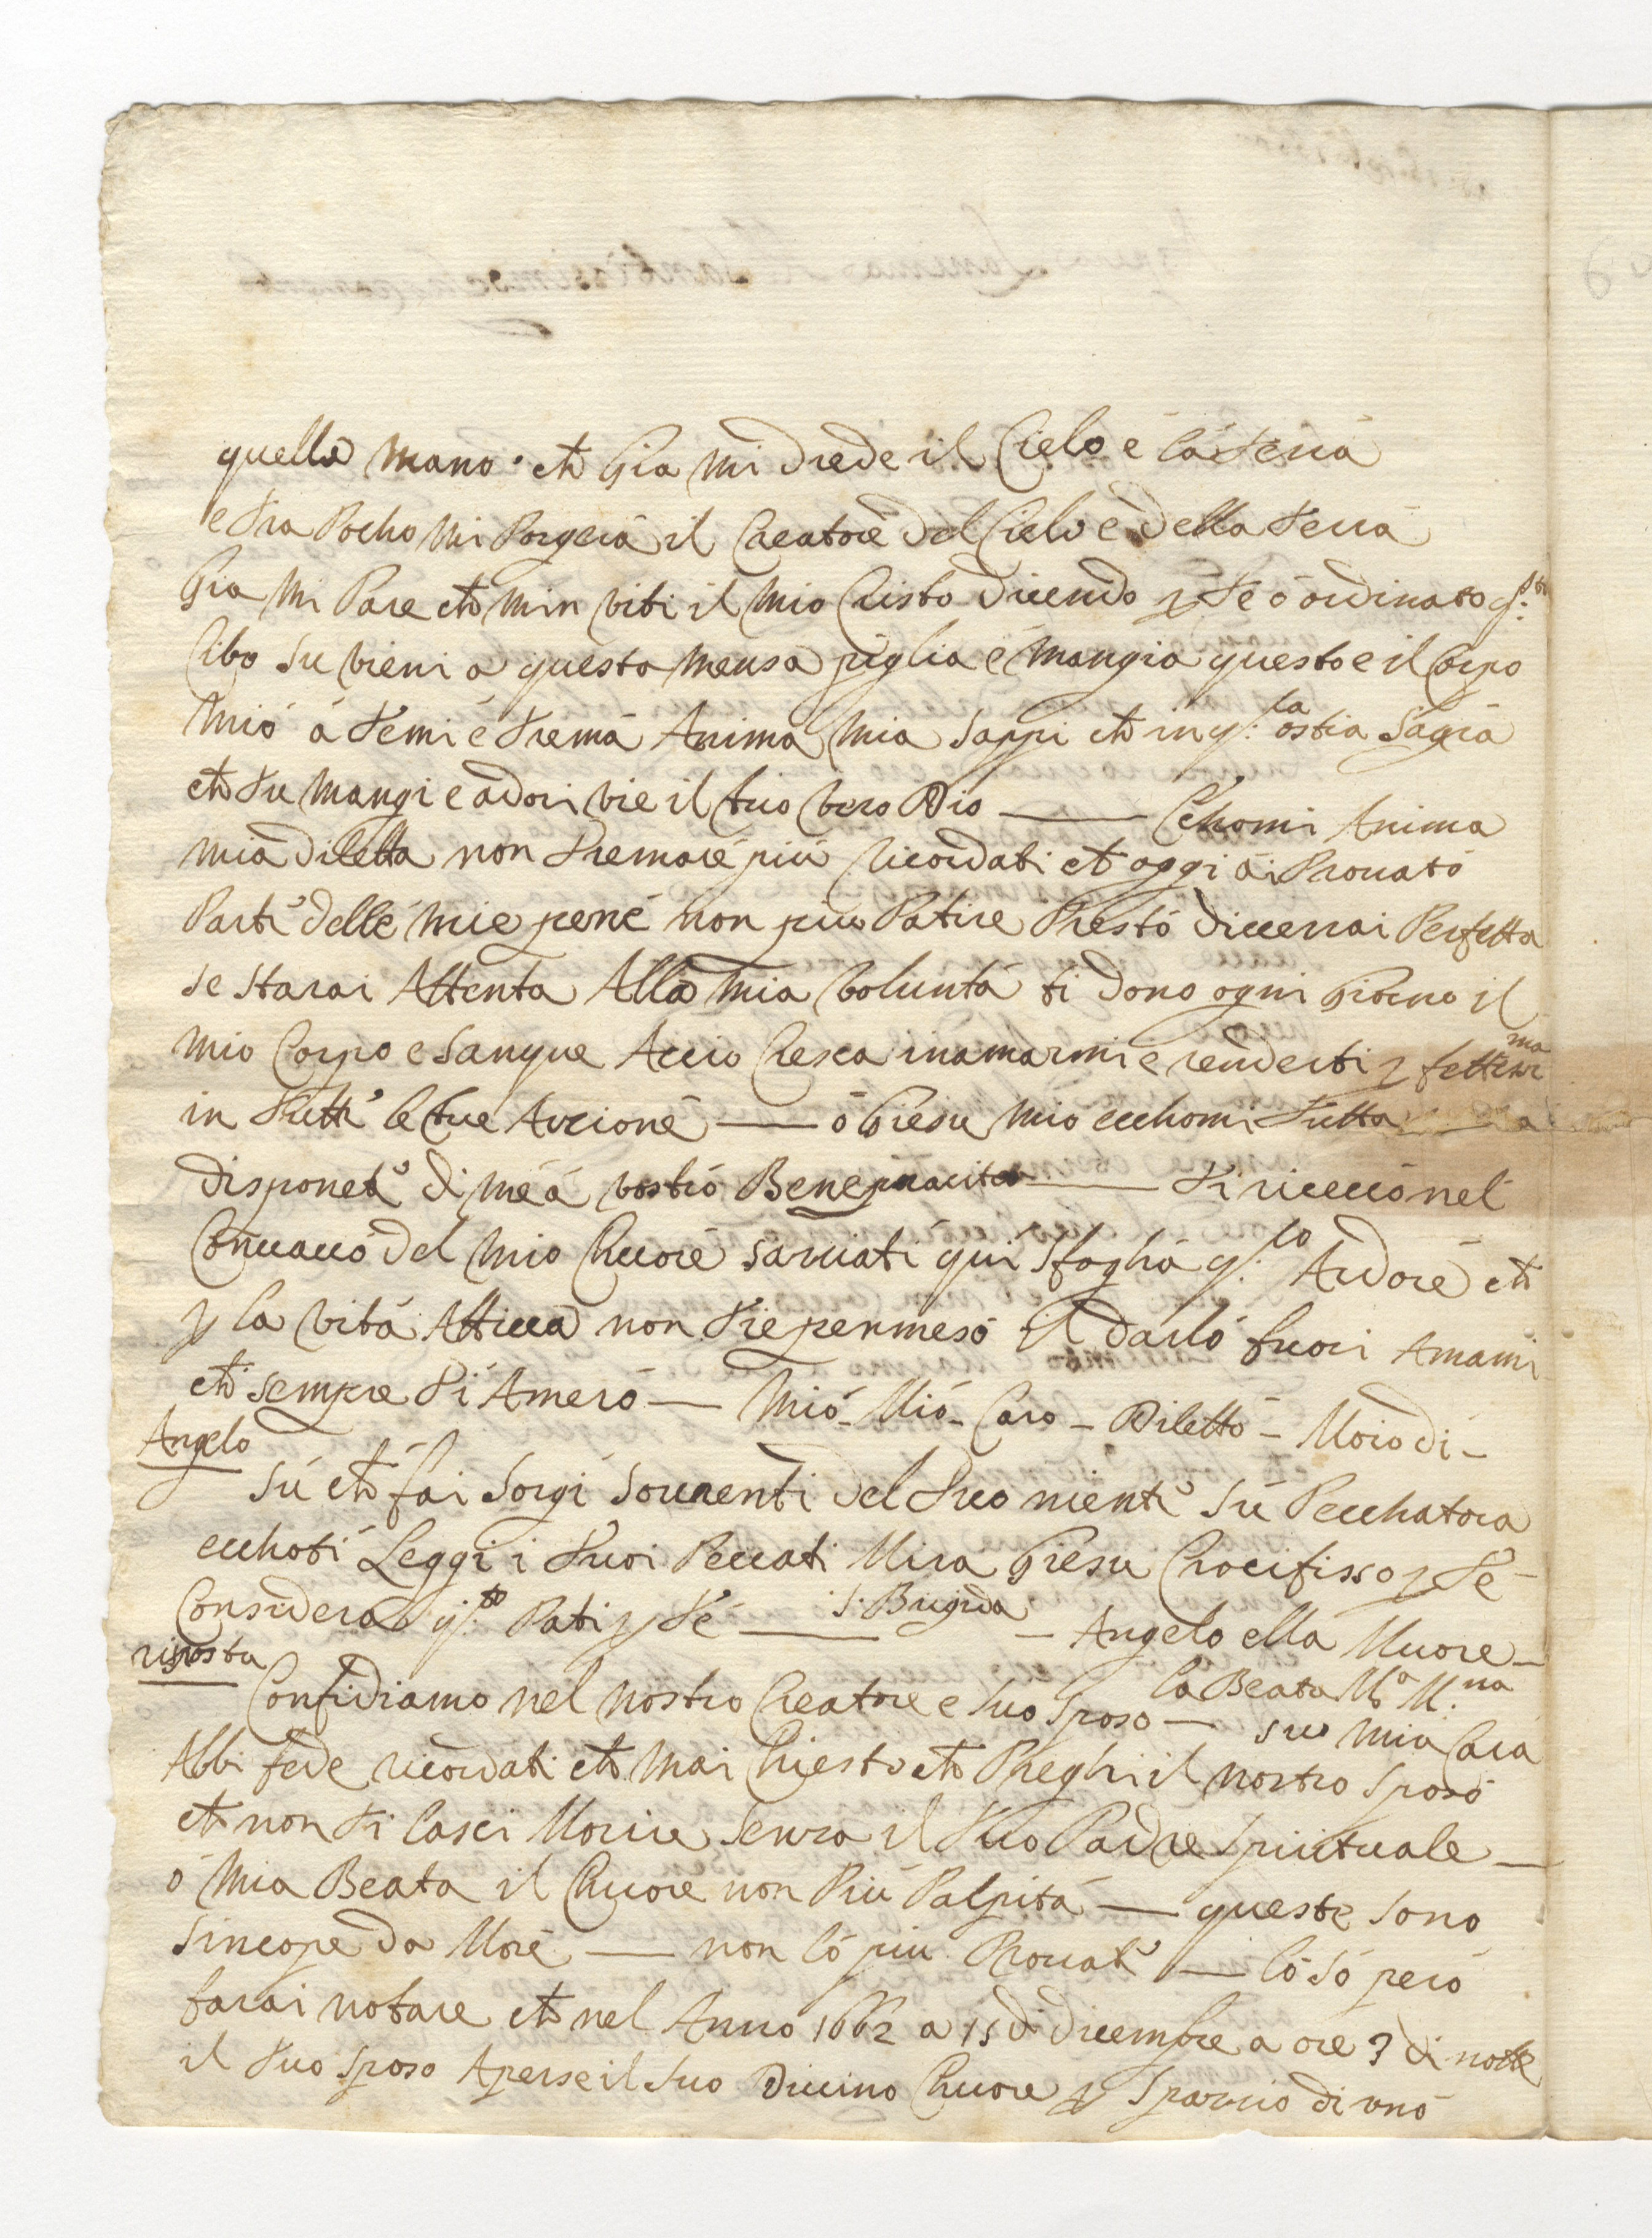 quella mano che Gia mi diede il Cielo e la Terra
e Tra Pocho mi Porgerà il Creatore del Cielo e della Terra
Gia mi Pare che min viti il mio Cristo dicendo p Te ò ordinato q.to
Cibo su vieni a questa mensa piglia e mangia questo e il Corpo
mio à Temi e Trema Anima mia sappi che in q.la ostia Sagra
che Tu mangi e adori vie il tuo vero Dio — Echomi Anima
mia diletta non Tremare più ricordati che oggi ai Prouato
Parte delle mie pene non più Patire Presto diuerrai Perfetta
se starai Attenta Alla mia volunta ti dono ogni Giorno il
mio Corpo e sangue Accio Cresca inamarmi e renderti p fettissima
in Tutte le tue Azzione — o Giesu mio ecchomi Tutta
disponete di me à vostro Beneplacito — Ti riceuo nel
Concauo del mio Chuore saruati qui sfogha q.lo Ardore che
p la vita Attiua non Tie permeso il darlo fuori Amami
che sempre Ti Amerò — Mio - Mio - Caro - Diletto - Moro di -
Angelo
Sù che fai Sorgi Souuenti del Tuo niente Sù Pecchatora
ecchoti Leggi i Tuoi Peccati Mira Giesu Crocifisso p Te
Considera q.to Pati p Te — S. Brigida — Angelo ella Muore —
risposta
Confidiamo nel nostro Creatore e suo Sposo — La Beata M.a M.na su mia Cara
Abbi fede ricordati che mai Chiesto che Preghi il nostro Sposo
che non Ti Lasci Morire Senza il Tuo Padre Spirituale —
o mia Beata il Chuore non Più Palpita — queste sono
sincope da More — non lò più Prouate — lo sò però
farai notare che nel Anno 1662 a 15 di dicembre a ore 3 di notte
il Tuo Sposo Aperse il suo Diuino Chuore p Spazzio di vno